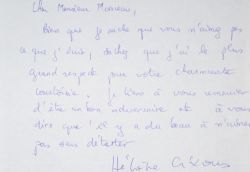 Cher Monsieur Moreau,
Bien que je sache que vous n'aimez pas
ce que j'écris, sachez que j'ai le plus
grand respect pour votre charmante
courtoisie. Je tiens à vous remercier
d'être un bon adversaire et à vous
dire que s'il y a du beau à n'aimer
pas sans détester